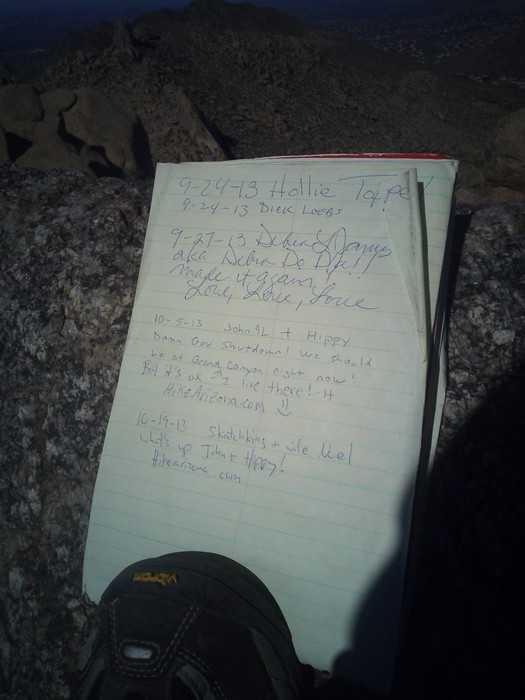 9-24-13 Hollie
9-24-13 Dick Loebs
9-27-13 Debra
aka Debra De
made it again!
Love, Love, Love
10-5-13 John9L + Hippy
Damn Gov shutdown! We should
be at Grand Canyon right now!
But it's ok I live there! -H
HikeArizona.com
10-19-13 Skatchkins + wife Mel
what's up John + Hippy!
Hikearizona.com
vibram